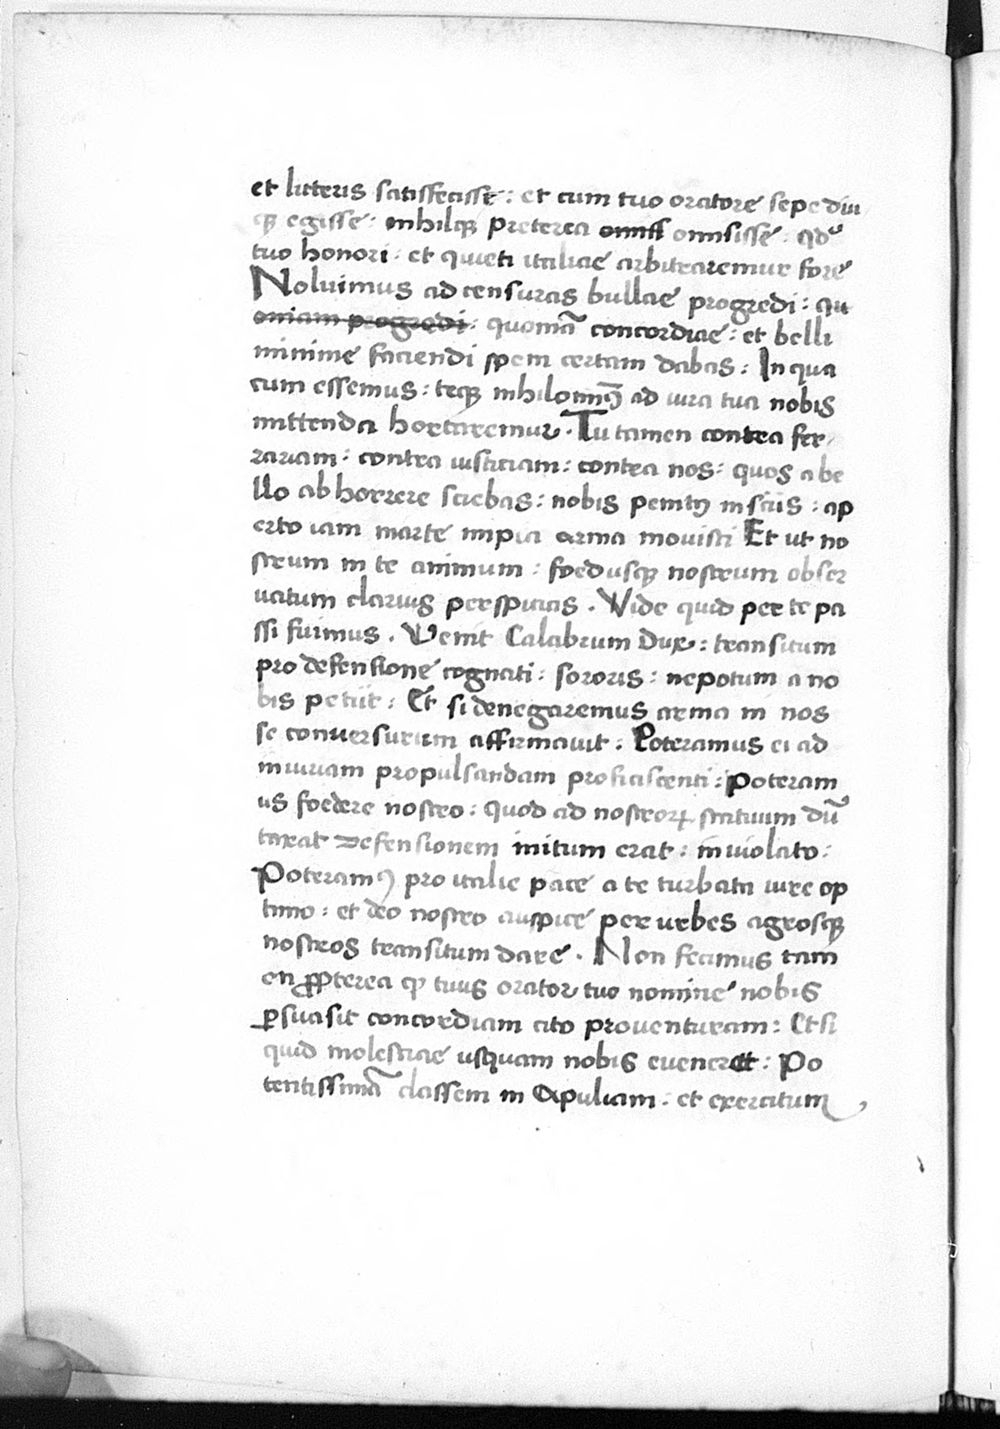 et litteris satisfecisse : et cum tuo oratore sepe diu
qꝫ egisse : nihilqꝫ preterea omiss omisisse : qd
tuo honori : et quieti italiae arbitraremur fore
Noluimus ad censuras bullae progredi : qu
oniam progredi : quoniā concordiae : et belli
minime faciendi spem certam dabas : In qua
cum essemus : teqꝫ nihilominꝰ ad iura tua nobis
mittenda hortaremur . Tu tamen contra fer
rariam : contra iusticiam : contra nos : quos a be
llo abhorrere sciebas : nobis penitꝰ insciis : ap
erto iam marte impia arma movisti Et ut no
strum in te animum : foedusqꝫ nostrum obser
vatum clarius perspicias . Vide quid per te pa
ssi fuimus . Venit Calabrum Dux : transitum
pro defensione cognati : sororis : nepotum a no
bis petiit : Et si denegaremus arma in nos
se conversurum affirmavit : Poteramus ei ad
iniuriam propulsandam proficiscenti : Poteram
us foedere nostro : quod ad nostroꝝ statuum dū
taxat defensionem initum erat : inviolato :
Poteramꝰ pro italie pace a te turbata iure op
timo : et deo nostro auspice per urbes agrosqꝫ
nostros transitum dare . Non fecimus tam
en ꝓpterea ꝙ tuus orator tuo nomine nobis
ꝑsuasit concordiam cito proventuram : Et si
quid molestiae usquam nobis eveneret : Po
tentissimā classem in Apuliam : et exercitum